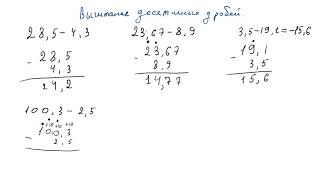 Вычитание десятичных дробей.
28,5 - 4,3
28,5
- 4,3
24,2
23,67 - 8,9
23,67
- 8,9
14,77
3,5 - 19,1 = -15,6
19,1
- 3,5
15,6
100,3 - 2,5
+10 +10 +10
100,3
- 2,5